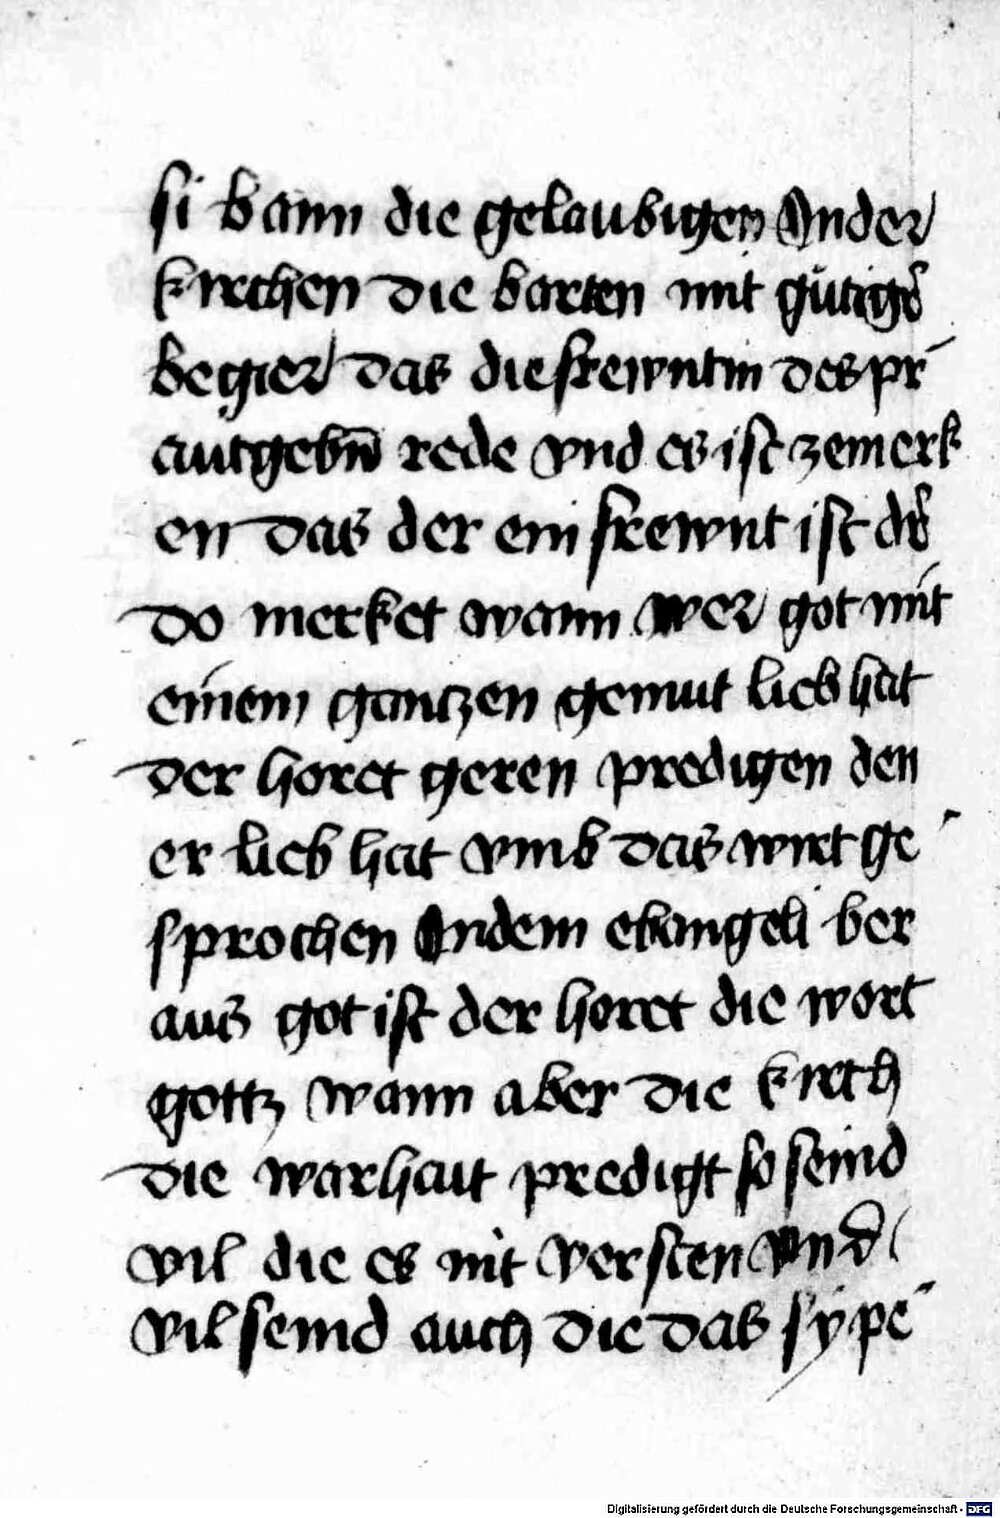 si bann die gelaubigen Ander
kirchen die barten mit gütig͛
begier das die frewntin des pr
autgebn̄ rede vnd es ist zemerk
en das der ein frewnt ist d͛
do merket wann wer got mit
einem gantzen gemut lieb hat
der horet geren predigen den
er lieb hat vmb das wirt ge
sprochen Andem ebangeli ber
aus got ist der horet die wort
gottz wann aber die kirch
die warhait predigt so seind
vil die es nit versten vnd
vil seind auch die das sy pe
Digitalisierung gefördert durch die Deutsche Forschungsgemeinschaft - DFG